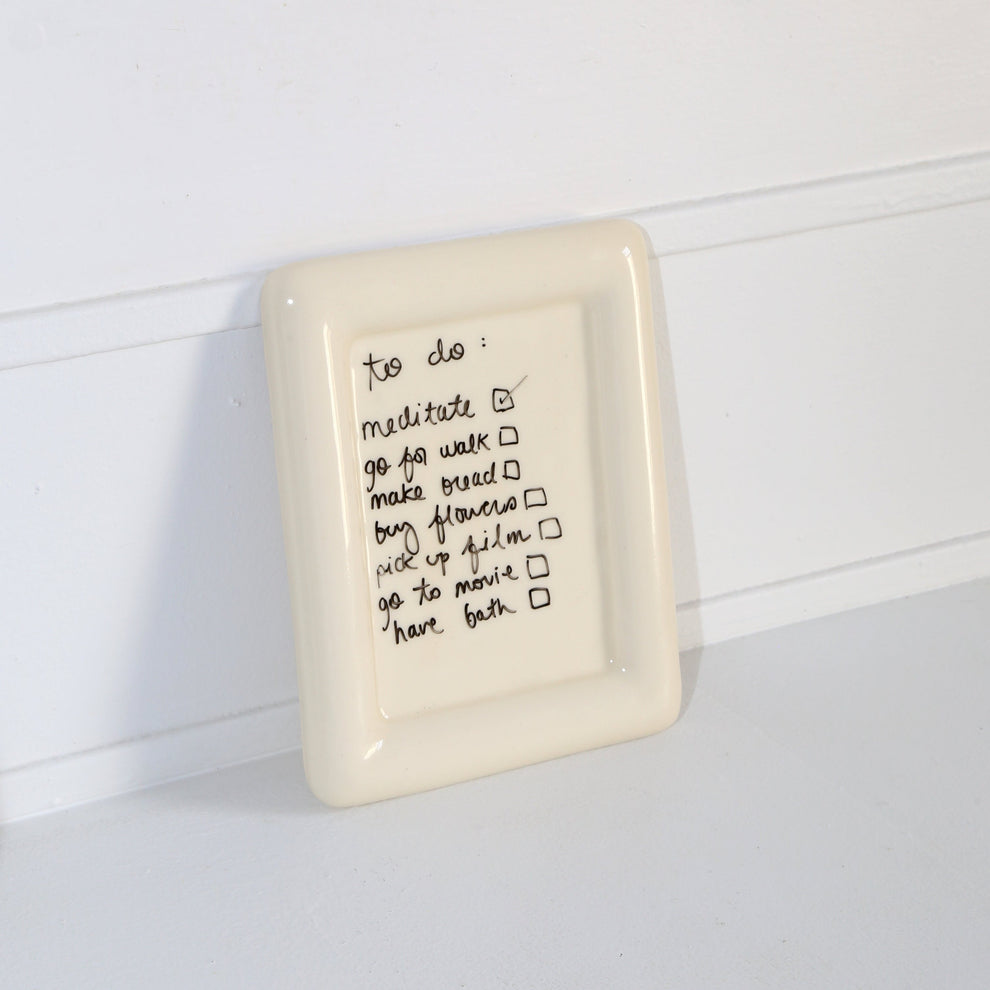 to do :
meditate ☑
go for walk ☐
make bread ☐
buy flowers ☐
pick up film ☐
go to movie ☐
have bath ☐